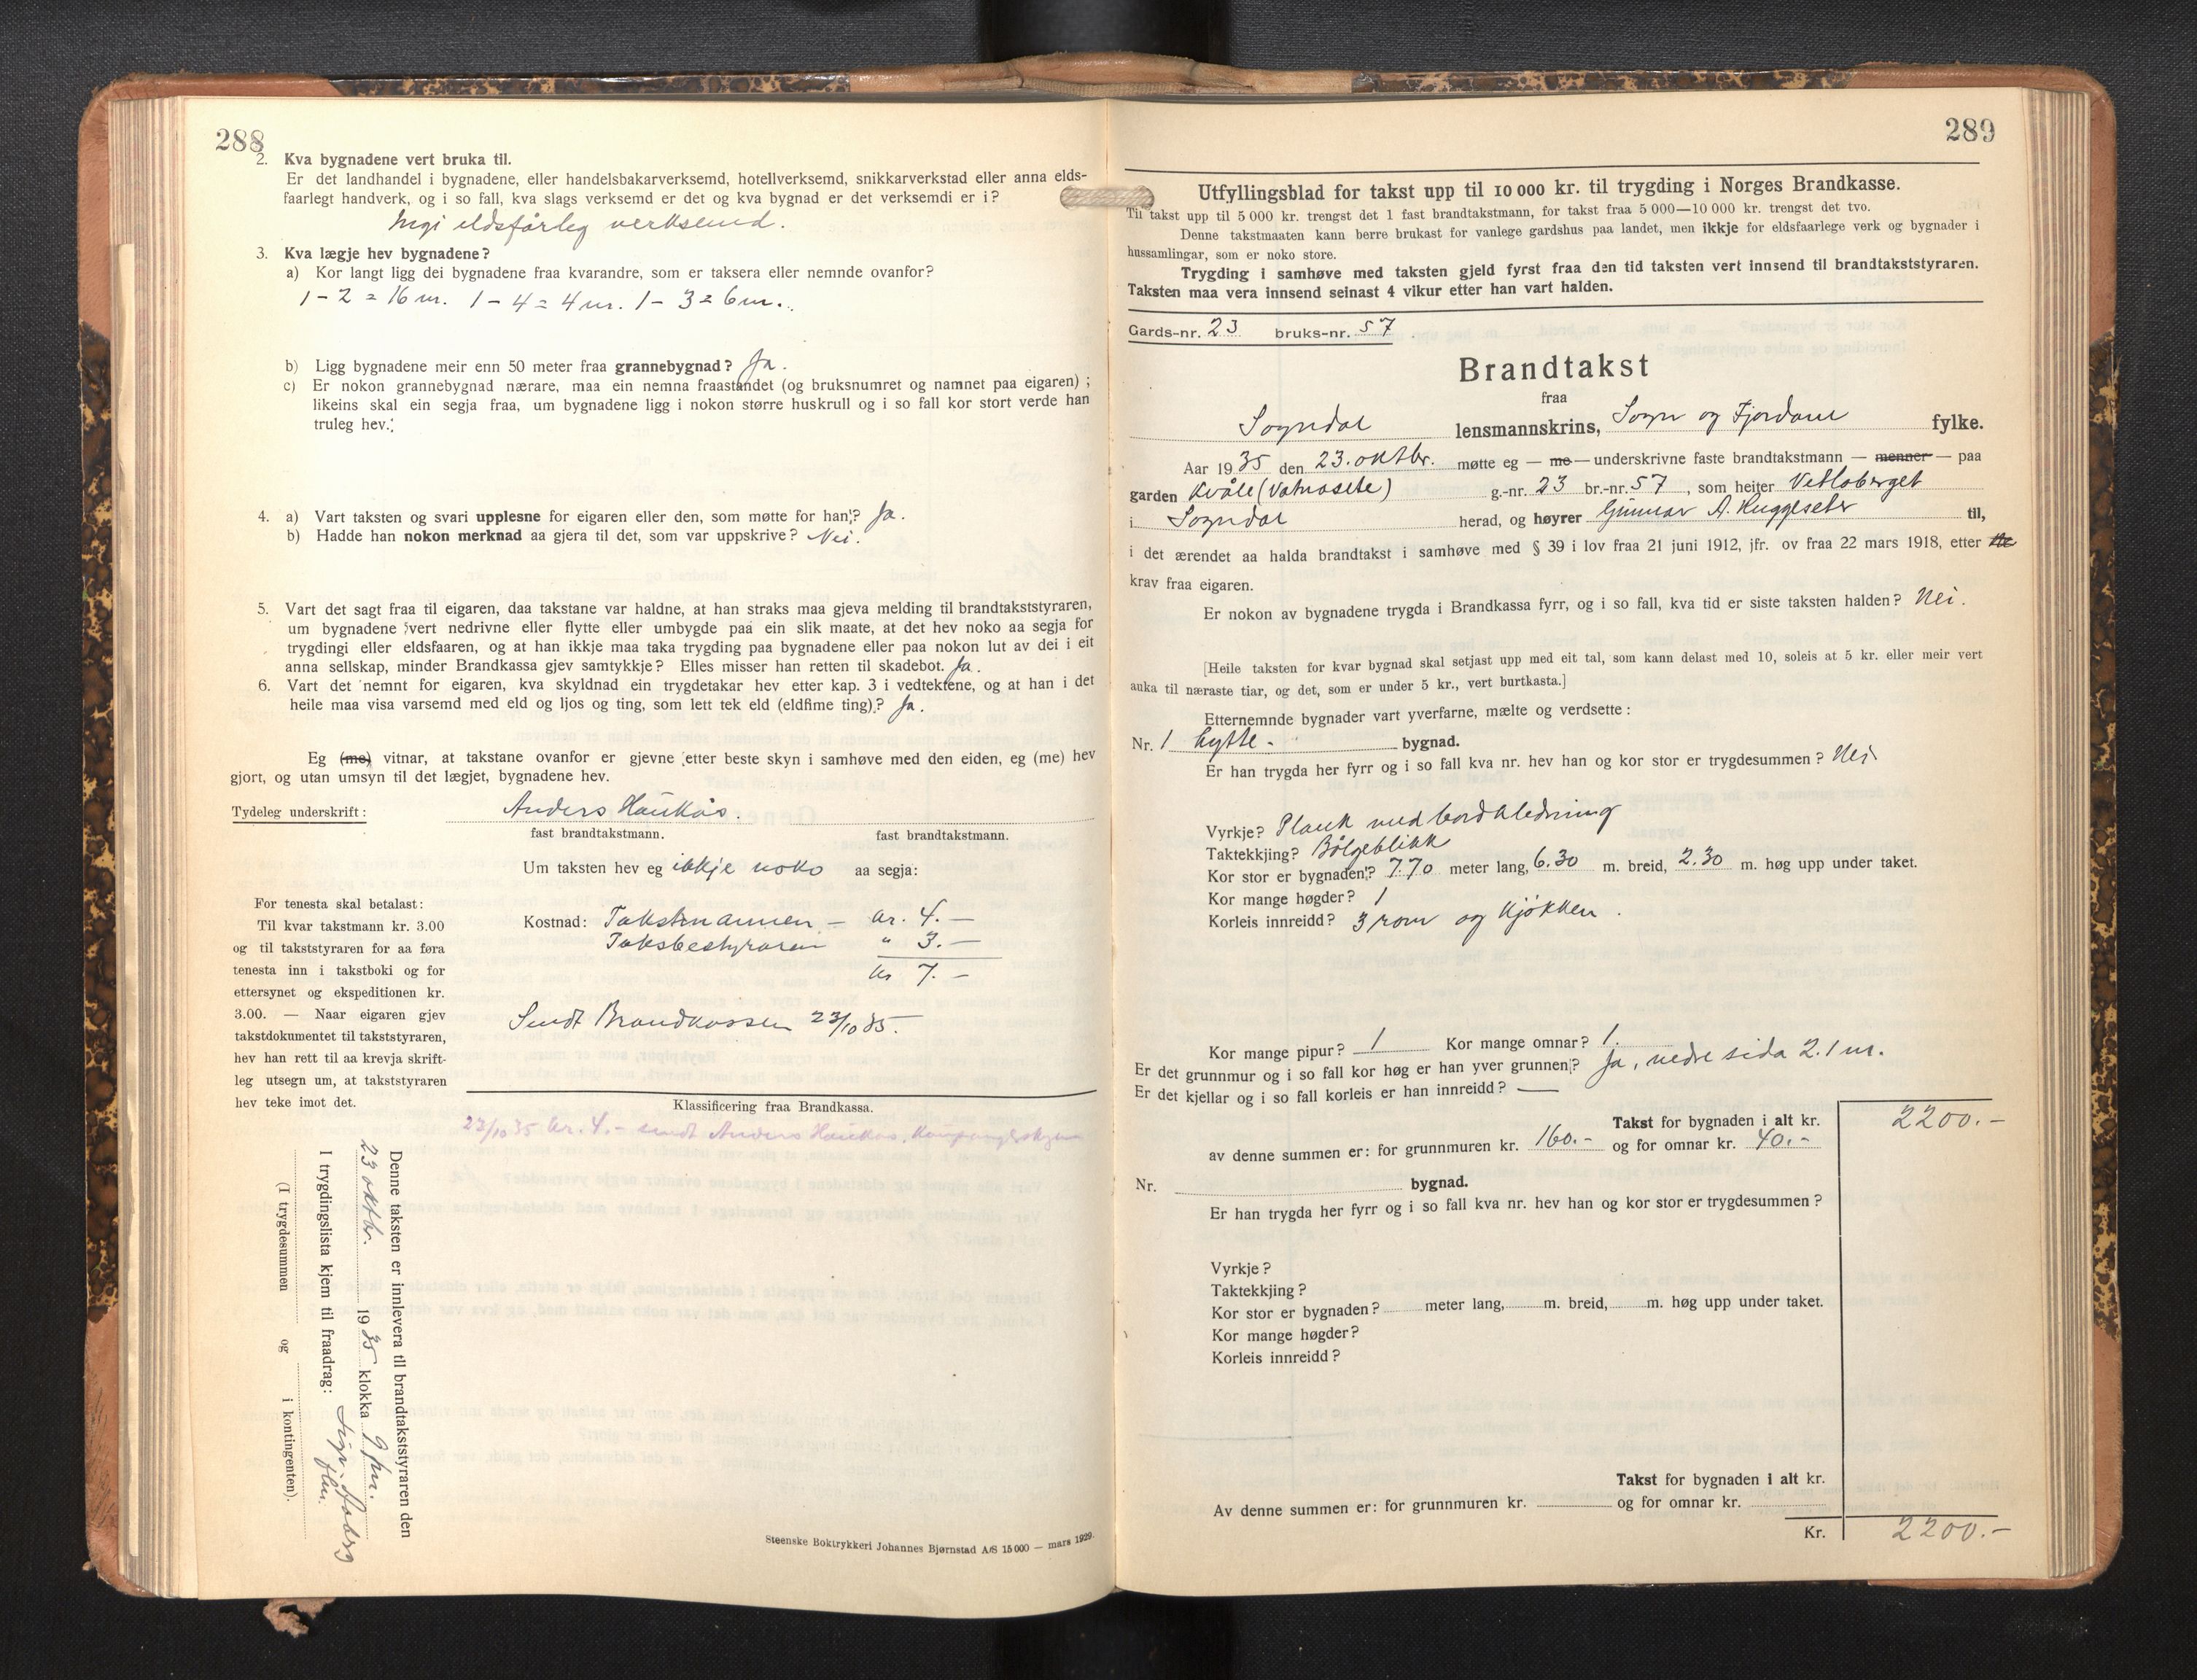 288
2. Kva bygnadene vert bruka til.
Er det landhandel i bygnadene, eller handelsbakarverksemd, hotellverksemd, snikkarverkstad eller anna elds-
faarlegt handverk, og i so fall, kva slags verksemd er det og kva bygnad er det verksemdi er i?
Ingi eldsfårleg verksemd.
3. Kva lægje hev bygnadene?
a) Kor langt ligg dei bygnadene fraa kvarandre, som er taksera eller nemnde ovanfor?
1 – 2 = 16 m. 1 – 4 = 4 m. 1 – 3 = 6 m.
b) Ligg bygnadene meir enn 50 meter fraa grannebygnad? Ja.
c) Er nokon grannebygnad nærare, maa ein nemna fraastandet (og bruksnumret og namnet paa eigaren) ;
likeins skal ein segja fraa, um bygnadene ligg i nokon større huskrull og i so fall kor stort verde han
truleg hev.
4. a) Vart taksten og svari upplesne for eigaren eller den, som møtte for han? Ja.
b) Hadde han nokon merknad aa gjera til det, som var uppskrive? Nei.
5. Vart det sagt fraa til eigaren, daa takstane var haldne, at han straks maa gjeva melding til brandtakststyraren,
um bygnadene vert nedrivne eller flytte eller umbygde paa ein slik maate, at det hev noko aa segja for
trygdingi eller eldsfaaren, og at han ikkje maa taka trygding paa bygnadene eller paa nokon lut av dei i eit
anna sellskap, minder Brandkassa gjev samtykkje? Elles misser han retten til skadebot. Ja.
6. Vart det nemnt for eigaren, kva skyldnad ein trygdetakar hev etter kap. 3 i vedtektene, og at han i det
heile maa visa varsemd med eld og ljos og ting, som lett tek eld (eldfime ting)? Ja.
Eg (me) vitnar, at takstane ovanfor er gjevne etter beste skyn i samhøve med den eiden, eg (me) hev
gjort, og utan umsyn til det lægjet, bygnadene hev.
Tydeleg underskrift: Anders Haukås.
fast brandtakstmann. fast brandtakstmann.
Um taksten hev eg ikkje noko aa segja:
For tenesta skal betalast:
Til kvar takstmann kr. 3.00
og til takststyraren for aa føra
tenesta inn i takstboki og for
ettersynet og ekspeditionen kr.
3.00. — Naar eigaren gjev
takstdokumentet til takststyraren,
hev han rett til aa krevja skrift-
leg utsegn um, at takststyraren
hev teke imot det.
Kostnad: Takstmannen – kr. 4. –
Takstbestyraren " 3. –
kr 7. –
Sendt Brandkassen 23/10 35.
Klassificering fraa Brandkassa.
23/10 35 kr. 4. – sendt Anders Haukås,
Denne taksten er innlevera til brandtakststyraren den
23 oktbr. 1935 klokka 9 fm.
I trygdingslista kjem til fraadrag:
(I trygdesummen og i kontingenten).
Steenske Boktrykkeri Johannes Bjørnstad A/S 15 000 — mars 1929.
289
Utfyllingsblad for takst upp til 10 000 kr. til trygding i Norges Brandkasse.
Til takst upp til 5 000 kr. trengst det 1 fast brandtakstmann, for takst fraa 5 000—10 000 kr. trengst det tvo.
Denne takstmaaten kann berre brukast for vanlege gardshus paa landet, men ikkje for eldsfaarlege verk og bygnader i
hussamlingar, som er noko store.
Trygding i samhøve med taksten gjeld fyrst fraa den tid taksten vert innsend til brandtakststyraren.
Taksten maa vera innsend seinast 4 vikur etter han vart halden.
Gards-nr. 23 bruks-nr. 57
Brandtakst
fraa
Sogndal lensmannskrins, Sogn og Fjordane fylke.
Aar 1935 den 23. oktbr. møtte eg — me — underskrivne faste brandtakstmann — menner — paa
garden Kvåle (Vatnasete) g.-nr. 23 br.-nr. 57, som heiter Vetleberget
i Sogndal herad, og høyrer Gunnar A. Huggleseter til,
i det ærendet aa halda brandtakst i samhøve med § 39 i lov fraa 21 juni 1912, jfr. ov fraa 22 mars 1918, etter
krav fraa eigaren.
Er nokon av bygnadene trygda i Brandkassa fyrr, og i so fall, kva tid er siste taksten halden? Nei.
[Heile taksten for kvar bygnad skal setjast upp med eit tal, som kann delast med 10, soleis at 5 kr. eller meir vert
auka til næraste tiar, og det, som er under 5 kr., vert burtkasta.]
Etternemnde bygnader vart yverfarne, mælte og verdsette:
Nr. 1 hytte. bygnad.
Er han trygda her fyrr og i so fall kva nr. hev han og kor stor er trygdesummen? Nei
Vyrkje? Plank med bordkledning
Taktekkjing? Bølgeblikk
Kor stor er bygnaden? 7.70 meter lang, 6.30 m. breid, 2.30 m. høg upp under taket.
Kor mange høgder? 1
Korleis innreidd? 3 rom og kjøkken.
Kor mange pipur? 1 Kor mange omnar? 1.
Er det grunnmur og i so fall kor høg er han yver grunnen? Ja, nedre sida 2.1 m.
Er det kjellar og i so fall korleis er han innreidd? —
Takst for bygnaden i alt kr. 2200.–
av denne summen er: for grunnmuren kr. 160.– og for omnar kr. 40.–
Nr. bygnad.
Er han trygda her fyrr og i so fall kva nr. hev han og kor stor er trygdesummen?
Vyrkje?
Taktekkjing?
Kor stor er bygnaden? meter lang, m. breid, m. høg upp under taket.
Kor mange høgder?
Korleis innreidd?
Takst for bygnaden i alt kr.
Av denne summen er: for grunnmuren kr. og for omnar kr.
Kr. 2200.–